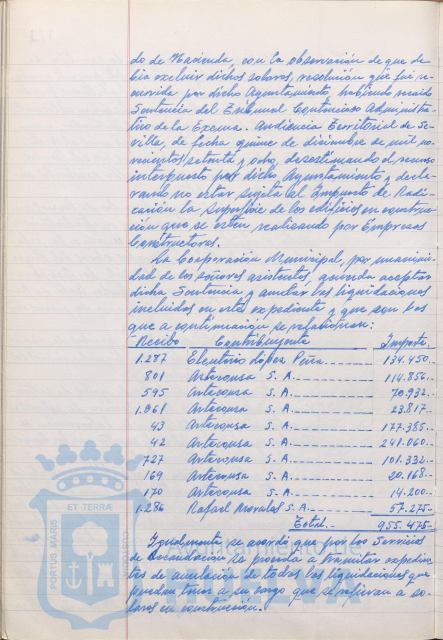 do de Hacienda, con la observación de que de-
bia excluir dichos solares, resolución que fué re-
currida por dicho Ayuntamiento, habiendo recaido
Sentencia del Tribunal Contencioso Administra-
tivo de la Excma. Audiencia Territorial de Se-
villa, de fecha quince de diciembre de mil no-
vecientos setenta y ocho, desestimando el recurso
interpuesto por dicho Ayuntamiento y decla-
rando no estar sujeta al Impuesto de Radi-
cación la superficie de los edificios en construc-
ción que se esten realizando por Empresas
Constructoras.
La Corporación Municipal, por unanimi-
dad de los señores asistentes, acuerda aceptar
dicha Sentencia y anular las liquidaciones
incluidas en este expediente y que son las
que a continuación se relacionan:
Recibo Contribuyente Importe
1.287 Eleuterio López Peña 134.450
801 Arteconsa S. A. 114.856
595 Arteconsa S. A. 70.932
1.961 Arteconsa S. A. 23.817
43 Arteconsa S. A. 177.385
42 Arteconsa S. A. 241.060
727 Arteconsa S. A. 101.332
169 Arteconsa S. A. 20.168
170 Arteconsa S. A. 14.200
1.286 Rafael Morales S. A. 57.275
Total 955.475
Igualmente se acordó que por los Servicios
de Recaudación se proceda a tramitar expedien-
tes de anulación de todas las liquidaciones que
puedan tener a su cargo que se refieran a so-
lares en construcción.
PORTUS MARIS
ET TERRÆ
CUSTODIA
Ayuntamiento de